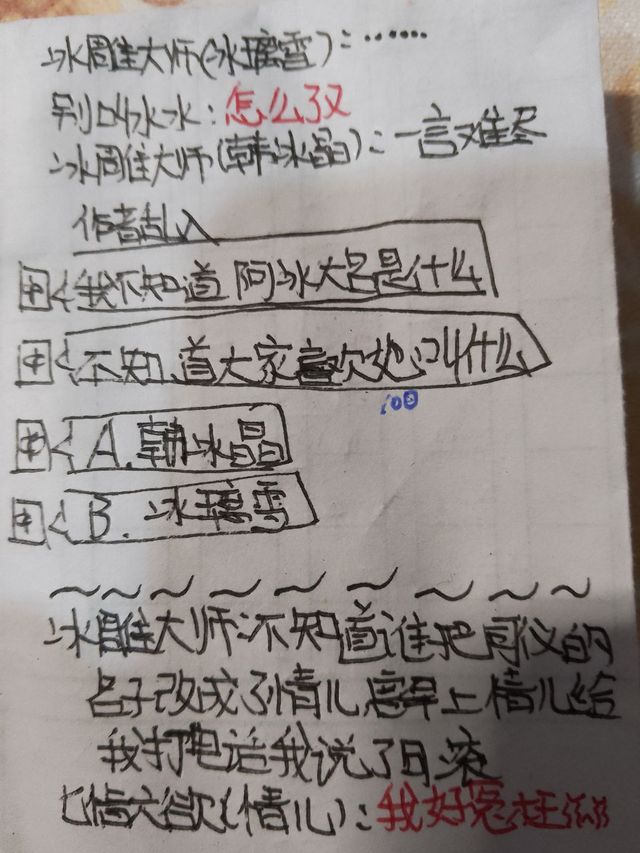 冰雕大师(冰璃雪):……
别叫水水:怎么了又
冰雕大师(韩冰晶):一言难尽
作者乱入
我不知道阿冰大名是什么
不知道大家喜欢她叫什么
100
A.韩冰晶
B.冰璃雪
~~~~~~~~~
冰雕大师:不知道谁把司仪的
名字改成了情儿 早上情儿给
我打电话我说了日滚
七情六欲(情儿):我好冤枉